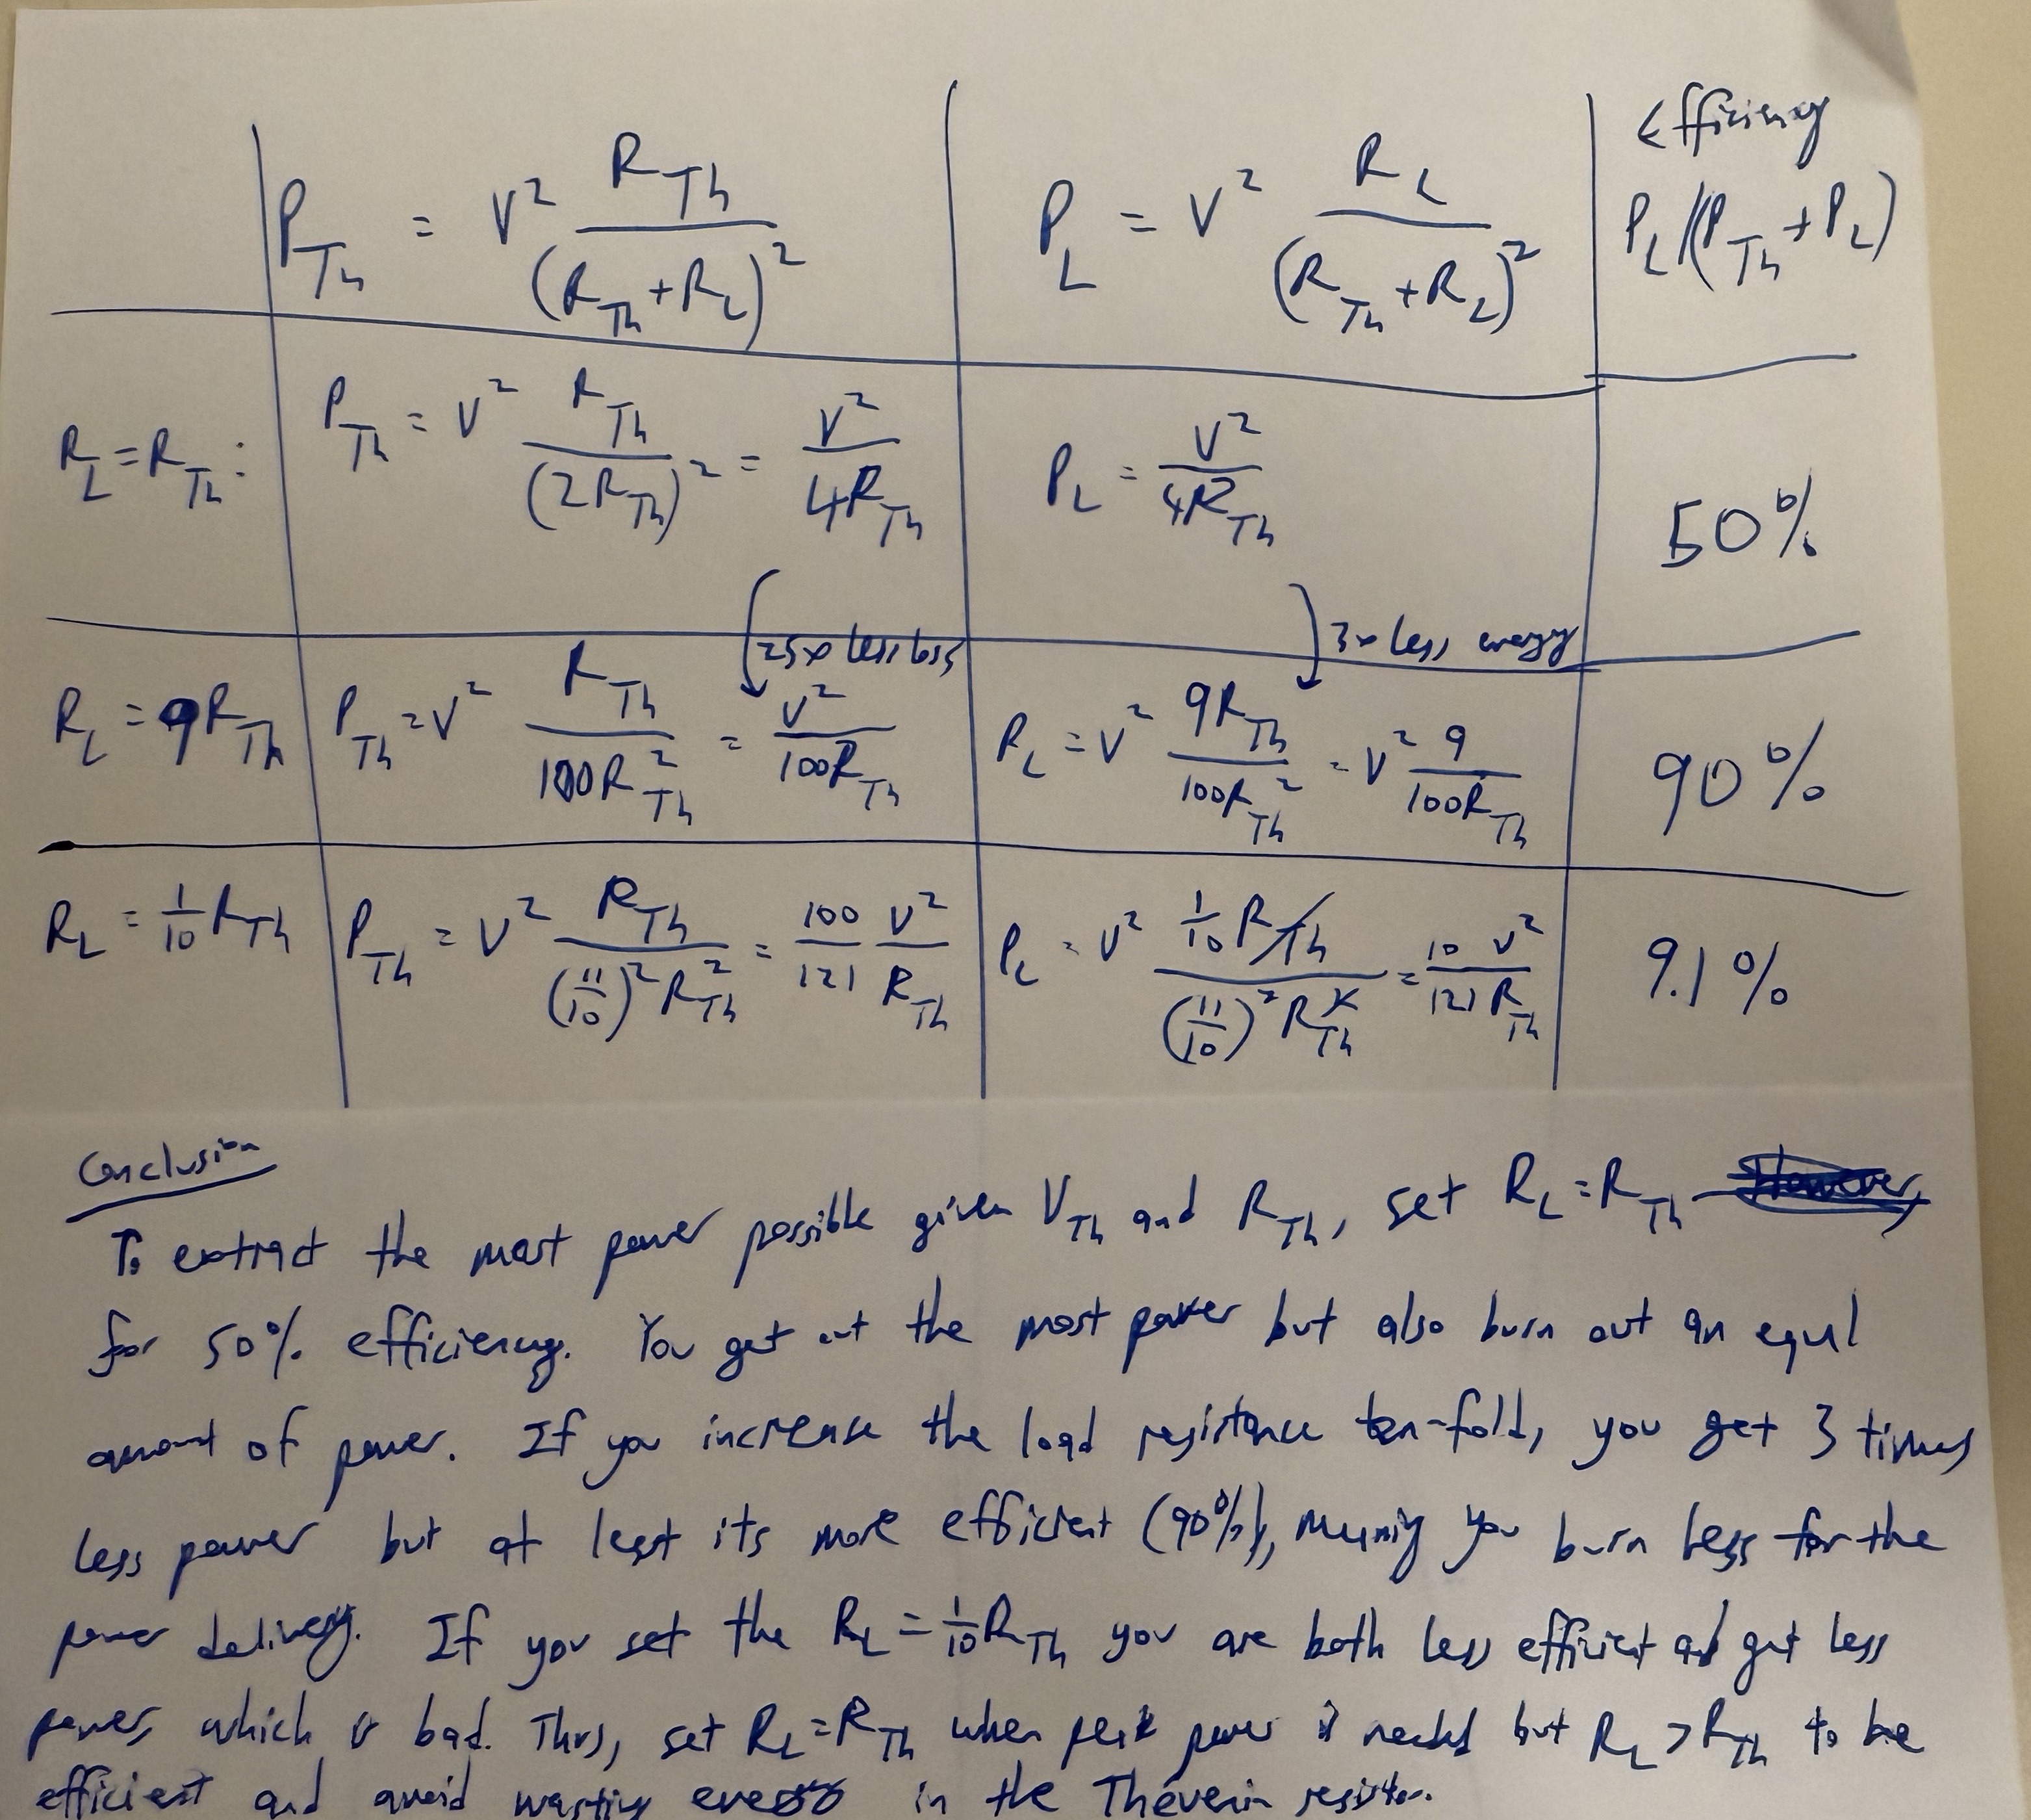 P_Th = V² R_Th / (R_Th + R_L)² | P_L = V² R_L / (R_Th + R_L)² | Efficiency P_L/(P_Th + P_L)
R_L = R_Th: | P_Th = V² R_Th / (2R_Th)² = V² / 4R_Th | P_L = V² / 4R_Th | 50%
25x less loss | 3x less energy
R_L = 9R_Th | P_Th = V² R_Th / 100R_Th² = V² / 100R_Th | P_L = V² 9R_Th / 100R_Th² = V² 9 / 100R_Th | 90%
R_L = 1/10 R_Th | P_Th = V² R_Th / (11/10)² R_Th² = 100/121 V²/R_Th | P_L = V² 1/10 R_Th / (11/10)² R_Th² = 10/121 V²/R_Th | 9.1%
Conclusion
To extract the most power possible given V_Th and R_Th, set R_L = R_Th
for 50% efficiency. You get out the most power but also burn out an equal
amount of power. If you increase the load resistance ten-fold, you get 3 times
less power but at least its more efficient (90%), meaning you burn less for the
power delivery. If you set the R_L = 1/10 R_Th you are both less efficient and get less
power, which is bad. Thus, set R_L = R_Th when peak power is needed but R_L > R_Th to be
efficient and avoid wasting energy in the Thévenin resistor.